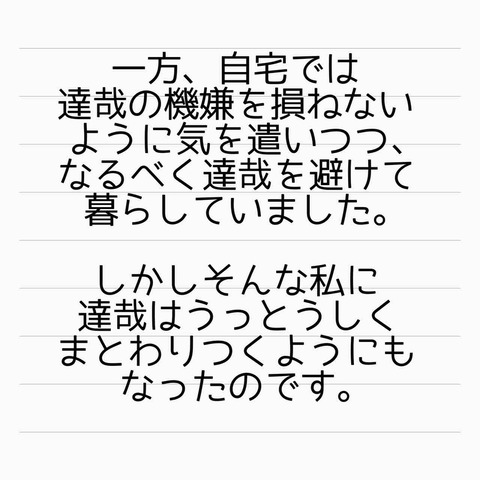 一方、自宅では
達哉の機嫌を損ねない
ように気を遣いつつ、
なるべく達哉を避けて
暮らしていました。
しかしそんな私に
達哉はうっとうしく
まとわりつくようにも
なったのです。